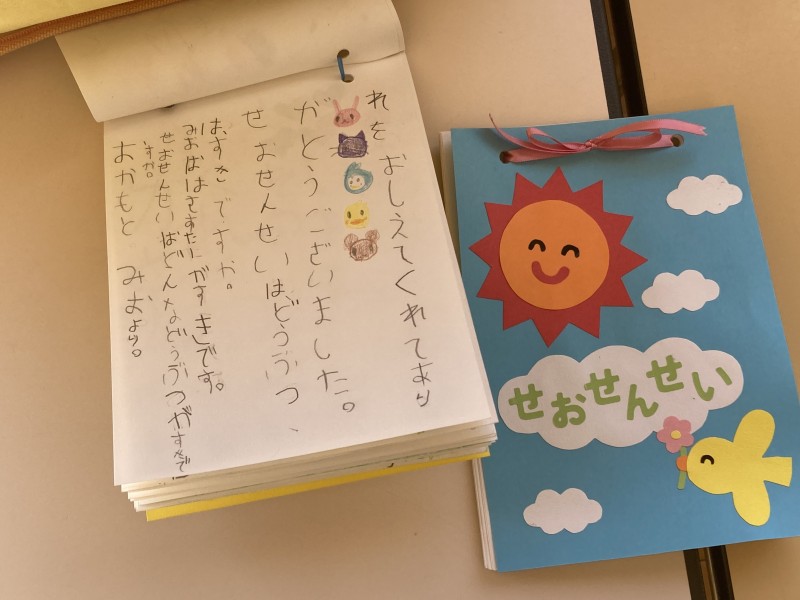 れをおしえてくれてあり
がとうございました。
せおせんせいはどうぶつ、
はすきですか。
みおははむすたーがすきです。
せおせんせいはどんなどうぶつがすきで
すか。
おかもと みおより。
せおせんせい